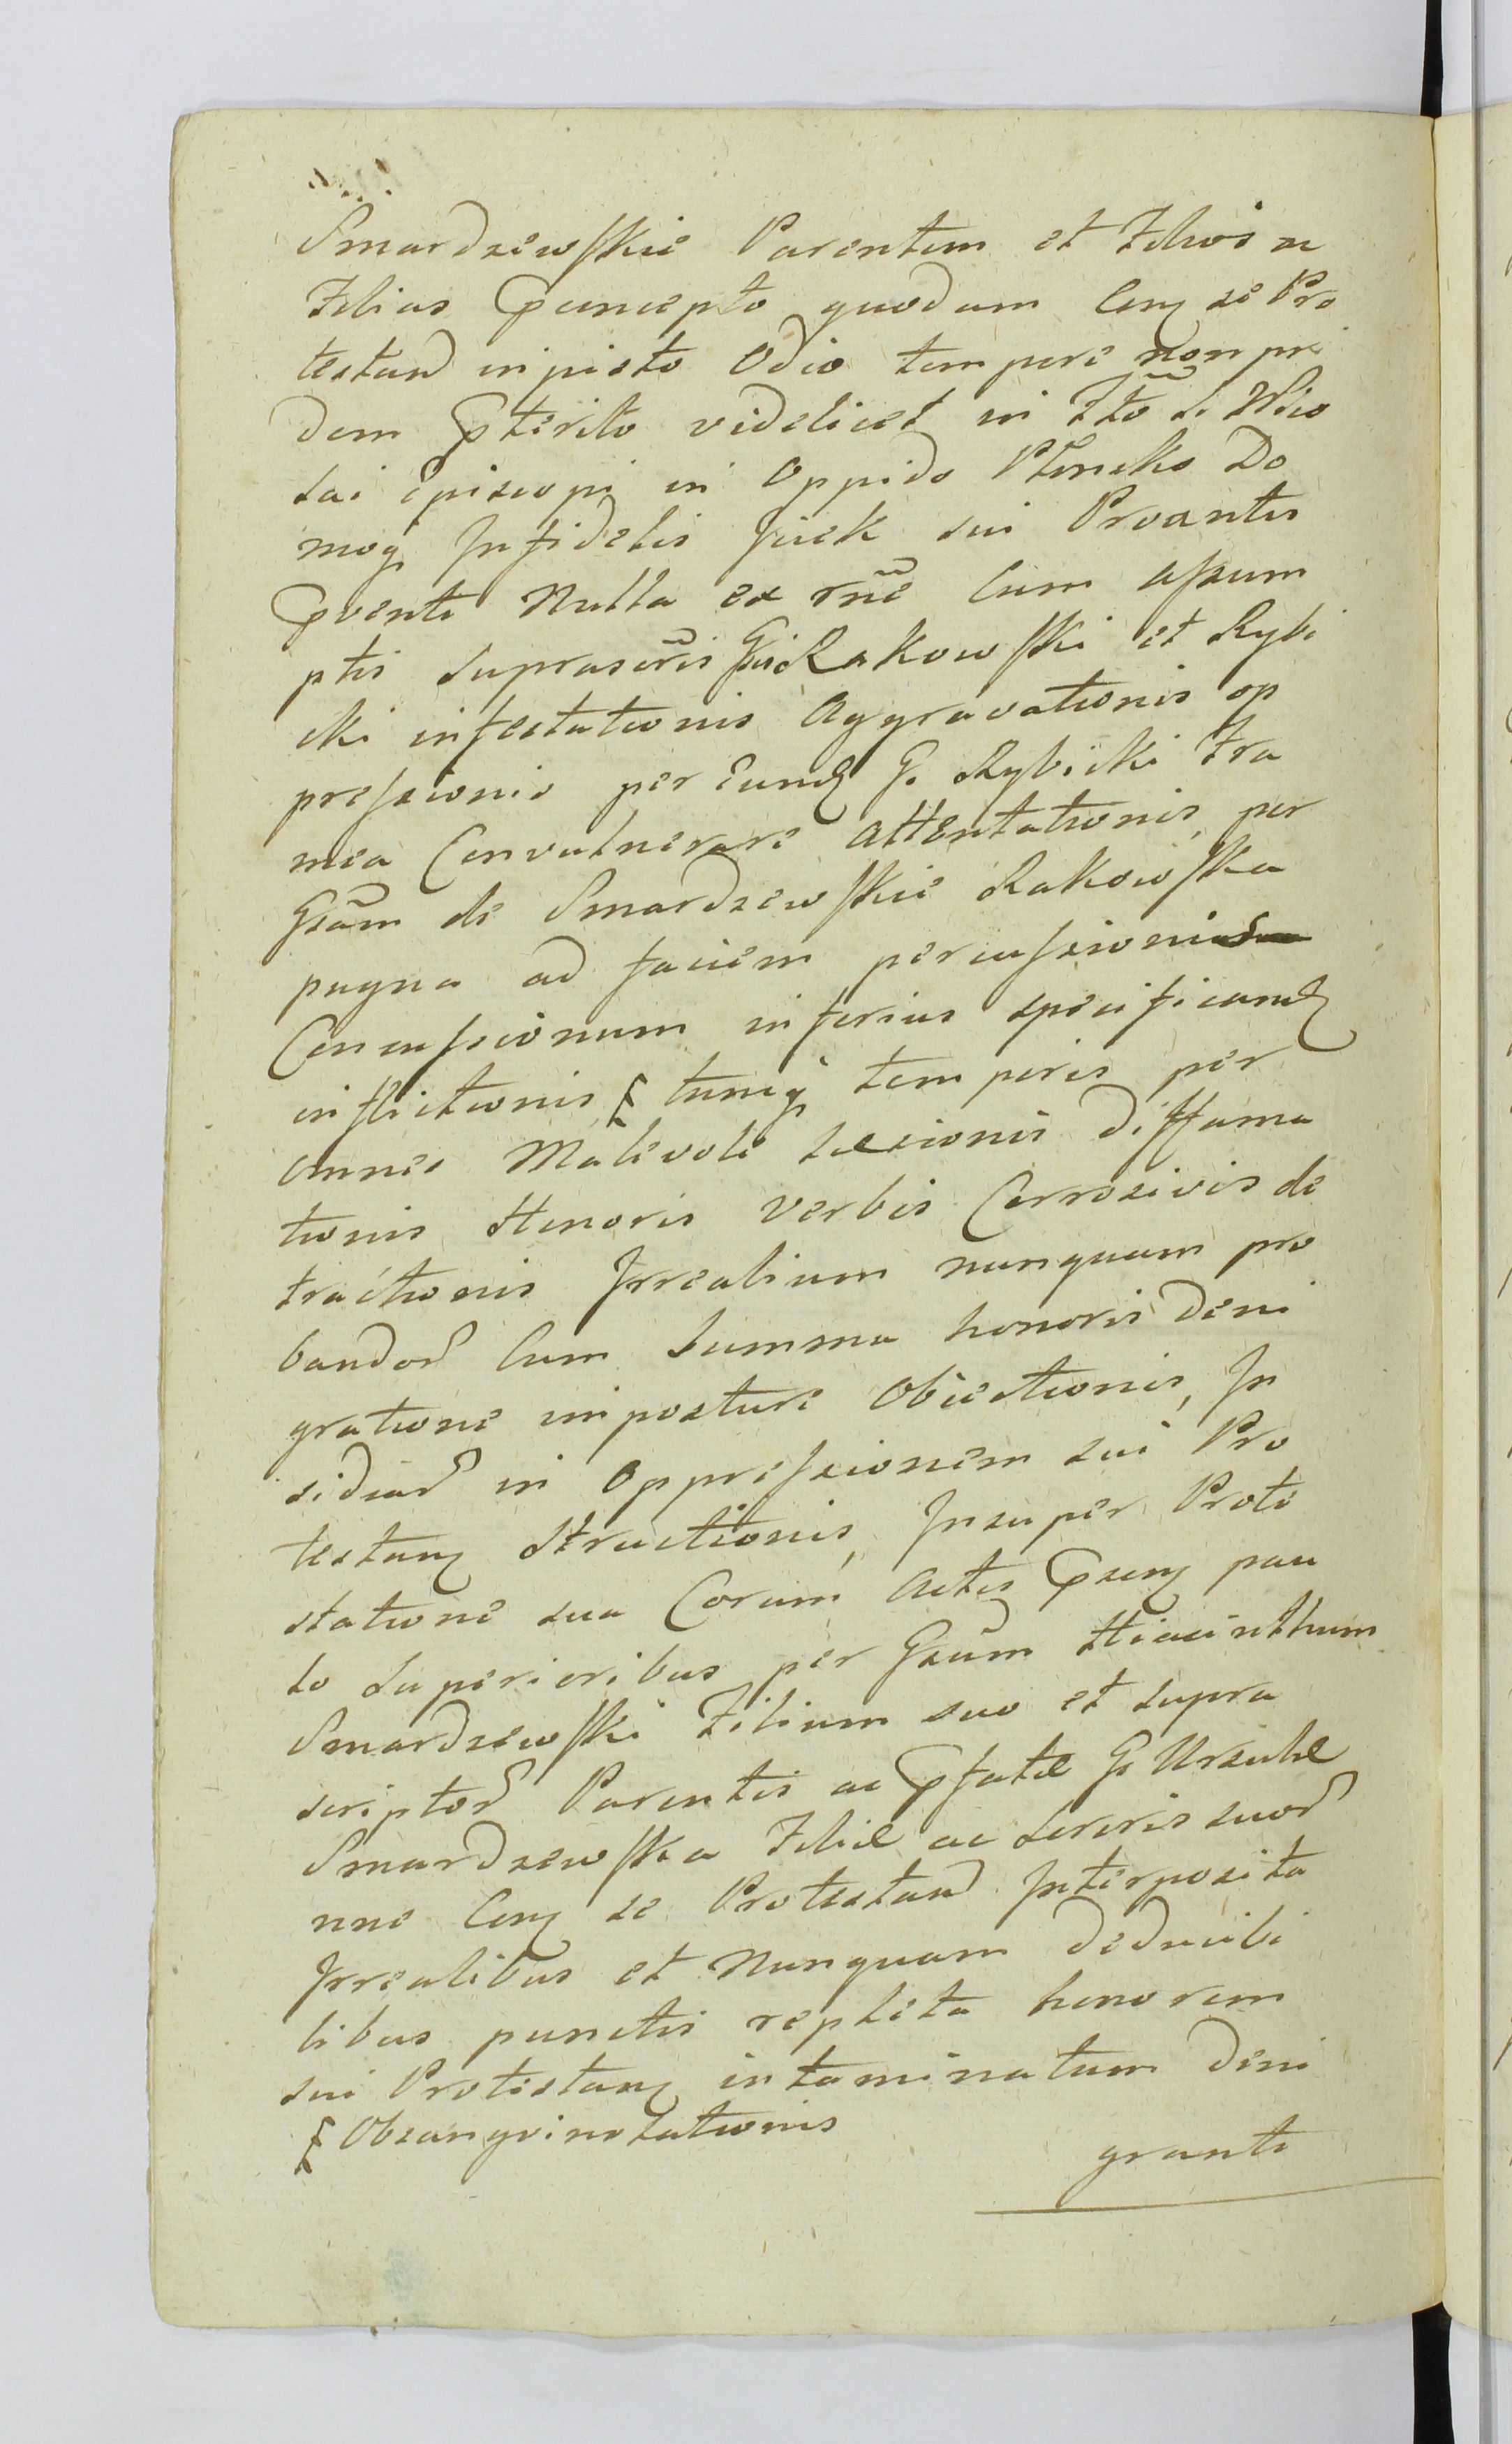 Smardzewskie Parentem et Filios ac
Filias Concepto quodam Con͠ se Pro
testand injusto Odio tempore non pri
dem Pterito videlicet in Fto S. Nico
lai Episcopi in Oppido Płonsko Do
moq Infidelis Jcek sui Proantis
Pventi Nulla ex rñe Cum assum
ptis suprascris Gsis Rakowski et Rybi
cki infestationis Aggravationis op
pressionis per Eund G. Rybicki Fra
mea Convulnerare Attentationis, per
Gsam de Smardzewskie Rakowska
pugna ad faciem percussionis
Concussionum inferius specificand
inflictionis tuncq temporis per
omnes Malevole Læsionis Diffama
tionis Honoris verbis Corrosivis de
tractionis Irrealium nunquam pro
bandor Cum Summa honoris Deni
gratione imposture Obiectionis, In
sidiar in Oppressionem sui Pro
testan Structionis, Insuper Prote
statione sua Coram Actis Psen pau
lo Superioribus per Gsum Hiacinthum
Smardzewski Filium suo et supra
scriptor Parentis ac Pfatæ G. Ursulæ
Smardzewska Filiæ ac Sororis suor
nne Con se Protestand Interposita
Irrealibus et Nunquam Deducibi
libus punctis repleta honorem
sui Protestan intaminatum Deni
Obsangvinolationis
granti